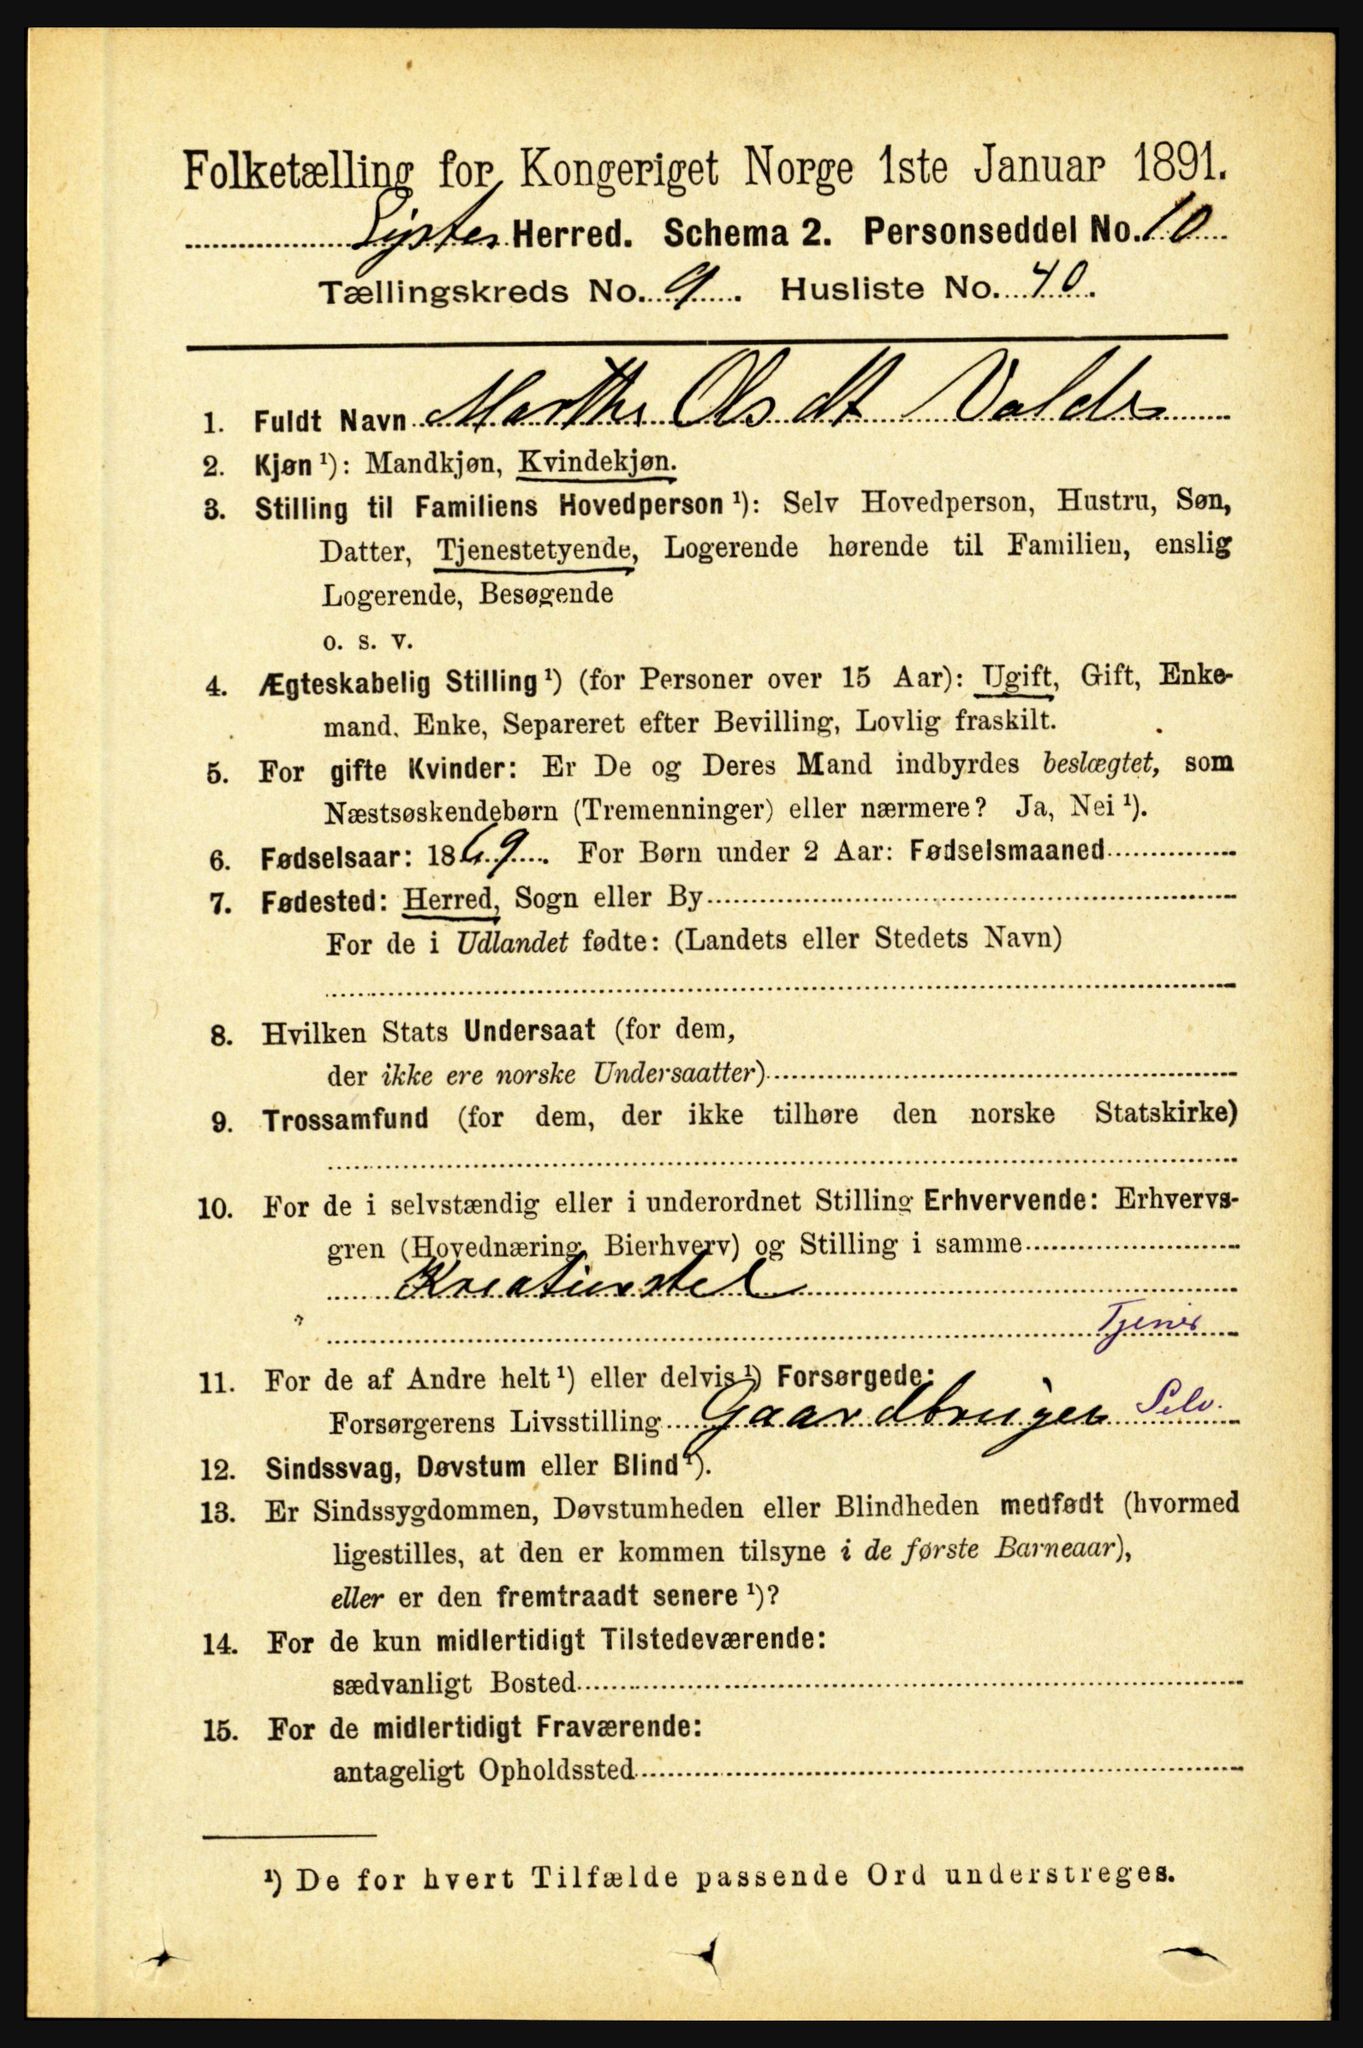 Folketælling for Kongeriget Norge 1ste Januar 1891.
Lyster Herred. Schema 2. Personseddel No. 10
Tællingskreds No. 9. Husliste No. 40.
1. Fuldt Navn Marthe Olsdt Volde
2. Kjøn ¹): Mandkjøn, Kvindekjøn.
3. Stilling til Familiens Hovedperson ¹): Selv Hovedperson, Hustru, Søn,
Datter, Tjenestetyende, Logerende hørende til Familien, enslig
Logerende, Besøgende
o. s. v.
4. Ægteskabelig Stilling ¹) (for Personer over 15 Aar): Ugift, Gift, Enke-
mand. Enke, Separeret efter Bevilling, Lovlig fraskilt.
5. For gifte Kvinder: Er De og Deres Mand indbyrdes beslægtet, som
Næstsøskendebørn (Tremenninger) eller nærmere? Ja, Nei ¹).
6. Fødselsaar: 1869. For Børn under 2 Aar: Fødselsmaaned
7. Fødested: Herred, Sogn eller By
For de i Udlandet fødte: (Landets eller Stedets Navn)
8. Hvilken Stats Undersaat (for dem,
der ikke ere norske Undersaatter)
9. Trossamfund (for dem, der ikke tilhøre den norske Statskirke)
10. For de i selvstændig eller i underordnet Stilling Erhvervende: Erhvervs-
gren (Hovednæring, Bierhverv) og Stilling i samme
Kreaturstel
Tjener
11. For de af Andre helt ¹) eller delvis ¹) Forsørgede:
Forsørgerens Livsstilling Gaardbruger Selv.
12. Sindssvag, Døvstum eller Blind ¹).
13. Er Sindssygdommen, Døvstumheden eller Blindheden medfødt (hvormed
ligestilles, at den er kommen tilsyne i de første Barneaar),
eller er den fremtraadt senere ¹)?
14. For de kun midlertidigt Tilstedeværende:
sædvanligt Bosted
15. For de midlertidigt Fraværende:
antageligt Opholdssted
¹) De for hvert Tilfælde passende Ord understreges.